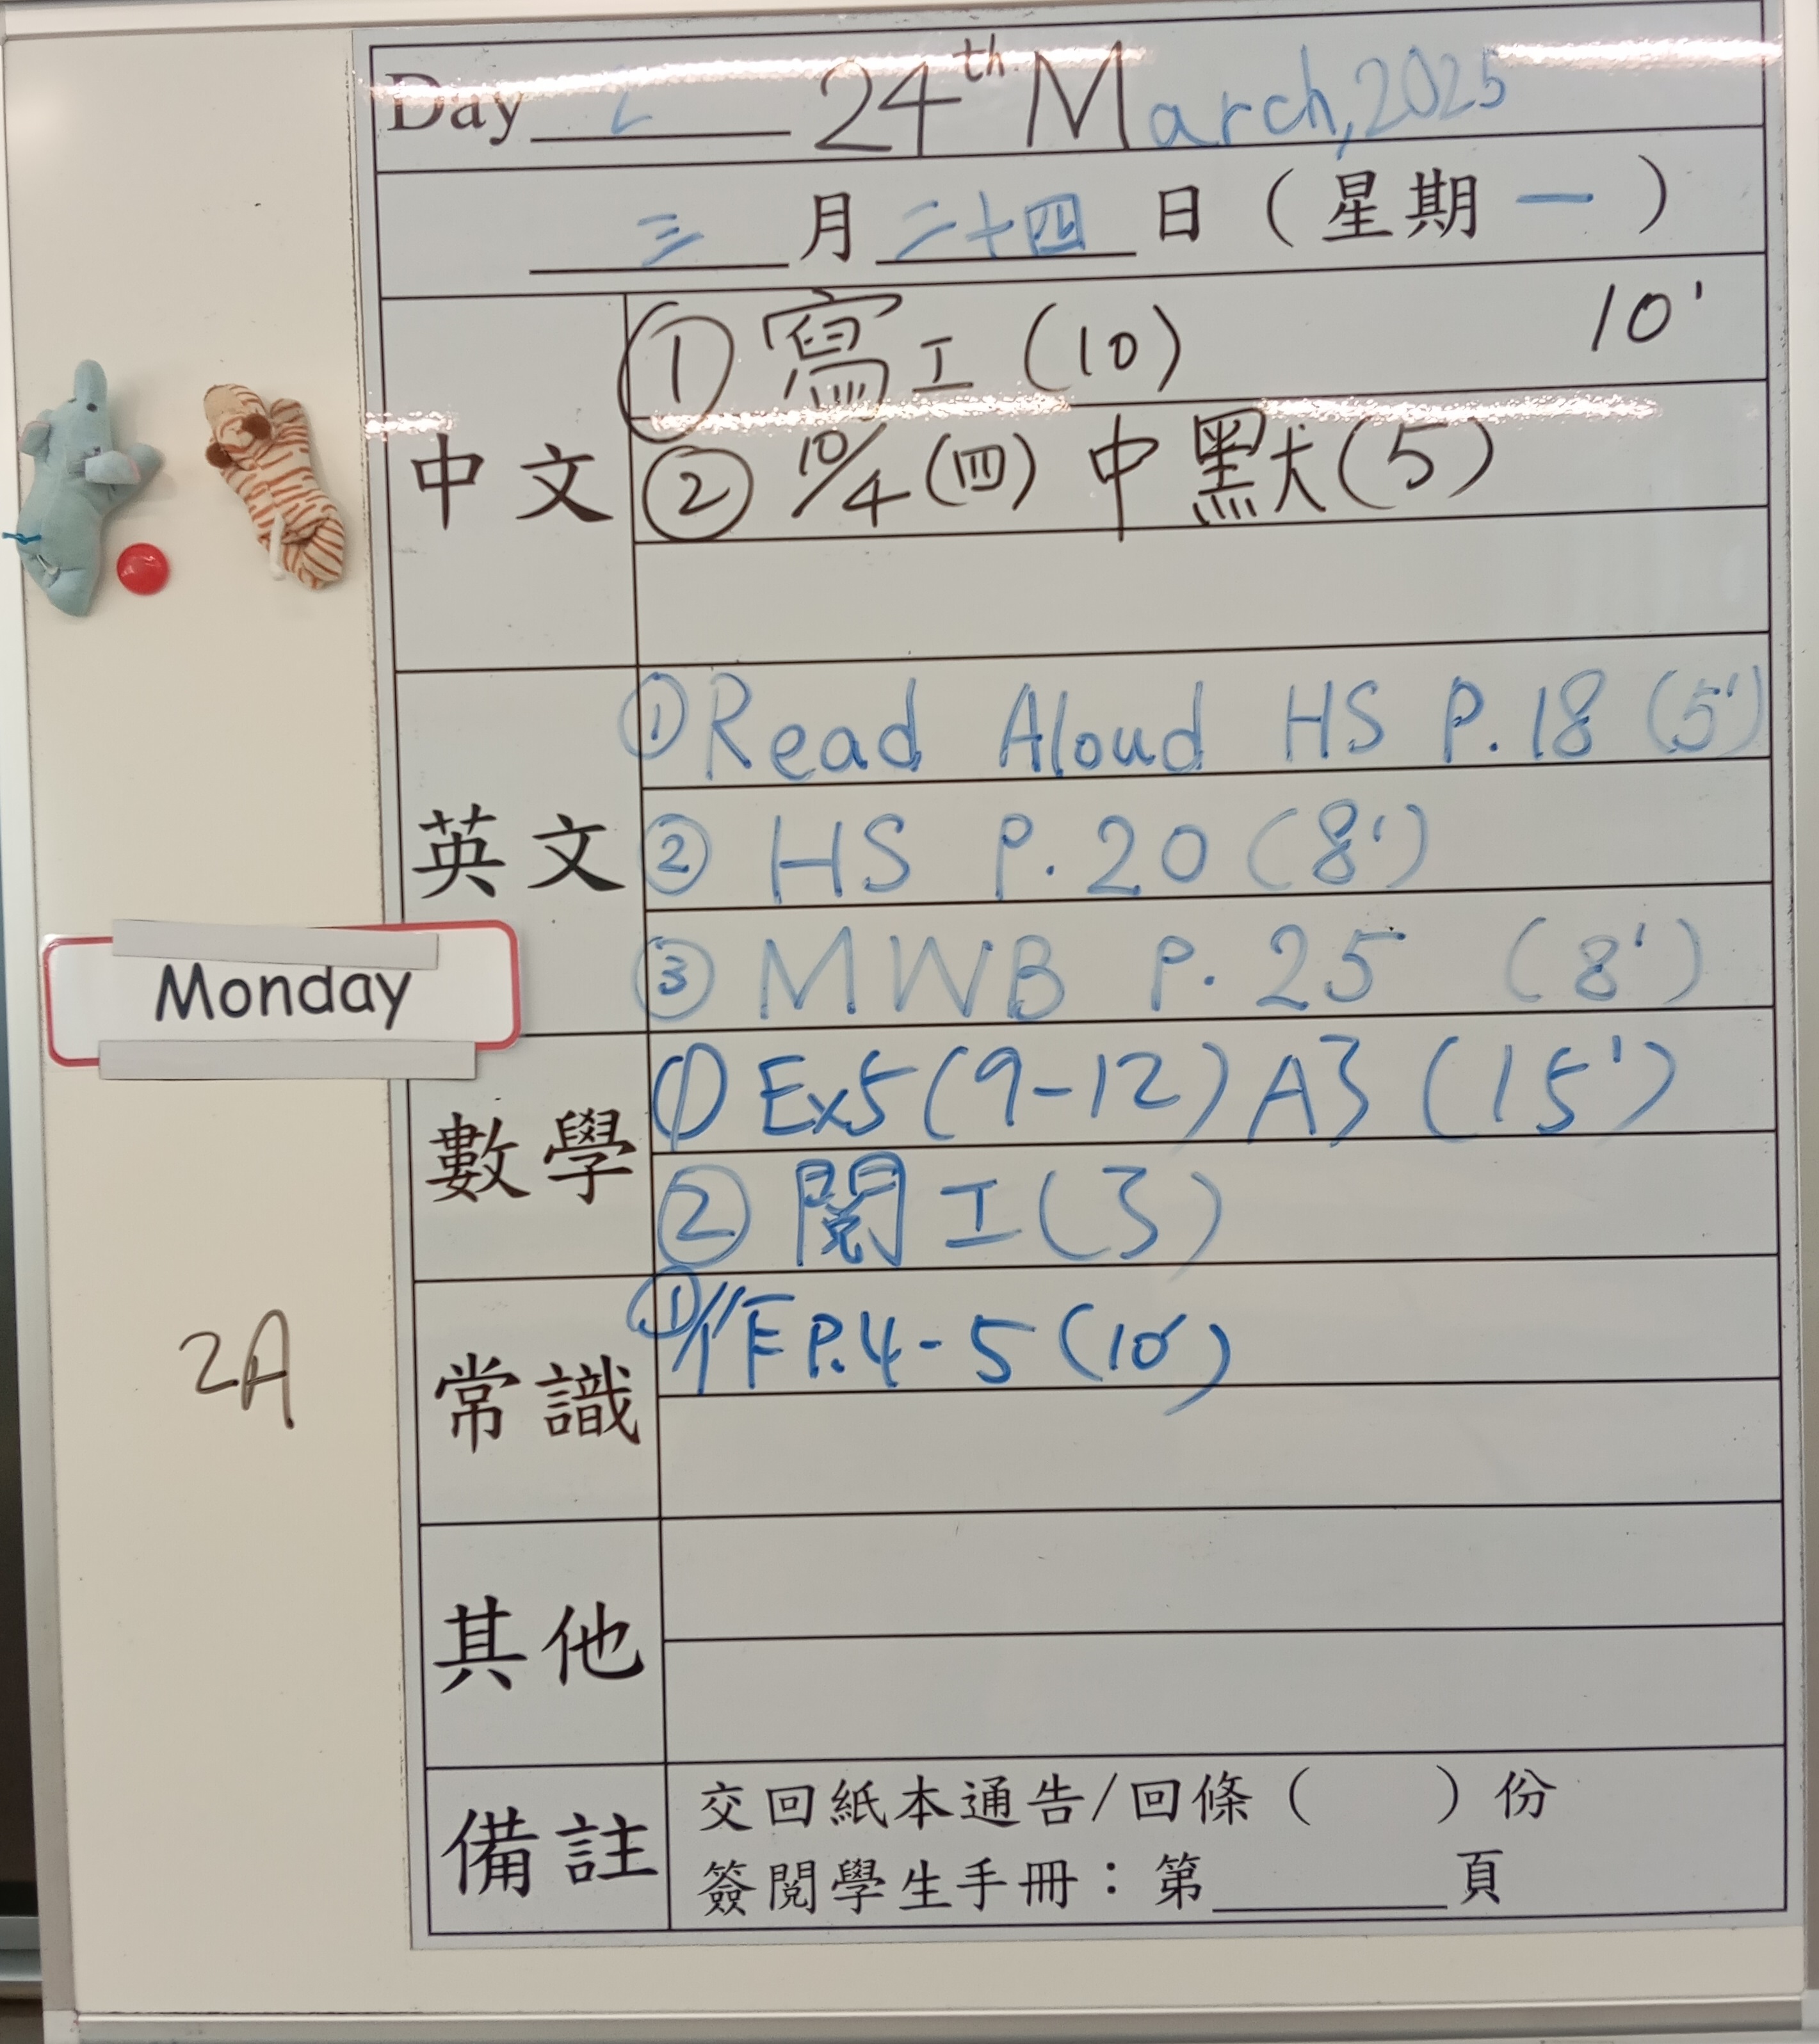 Day 24th March, 2025
三 月 二十四 日 ( 星期 一 )
中文
① 寫工 (10) 10'
② 10/4 (四) 中默 (5)
英文
① Read Aloud HS P.18 (5')
② HS P.20 (8')
③ MWB P.25 (8')
Monday
數學
① Ex5 (9-12) A3 (15')
② 閱工 (3)
2A
常識
① 作 P.4-5 (10')
其他
備註
交回紙本通告/回條 ( ) 份
簽閱學生手冊：第______頁